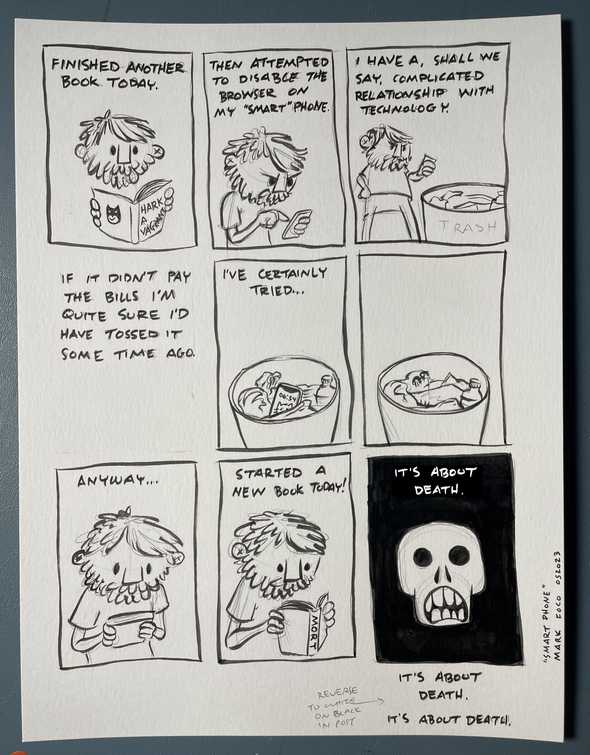 FINISHED ANOTHER
BOOK TODAY.
HARK
A
VAGRANT
THEN ATTEMPTED
TO DISABLE THE
BROWSER ON
MY "SMART" PHONE.
I HAVE A, SHALL WE
SAY, COMPLICATED
RELATIONSHIP WITH
TECHNOLOGY.
TRASH
IF IT DIDN'T PAY
THE BILLS I'M
QUITE SURE I'D
HAVE TOSSED IT
SOME TIME AGO.
I'VE CERTAINLY
TRIED...
ANYWAY...
STARTED A
NEW BOOK TODAY!
MORT
IT'S ABOUT
DEATH.
IT'S ABOUT
DEATH.
IT'S ABOUT DEATH.
REVERSE
TO WHITE
ON BLACK
IN POST
"SMART PHONE"
MARK